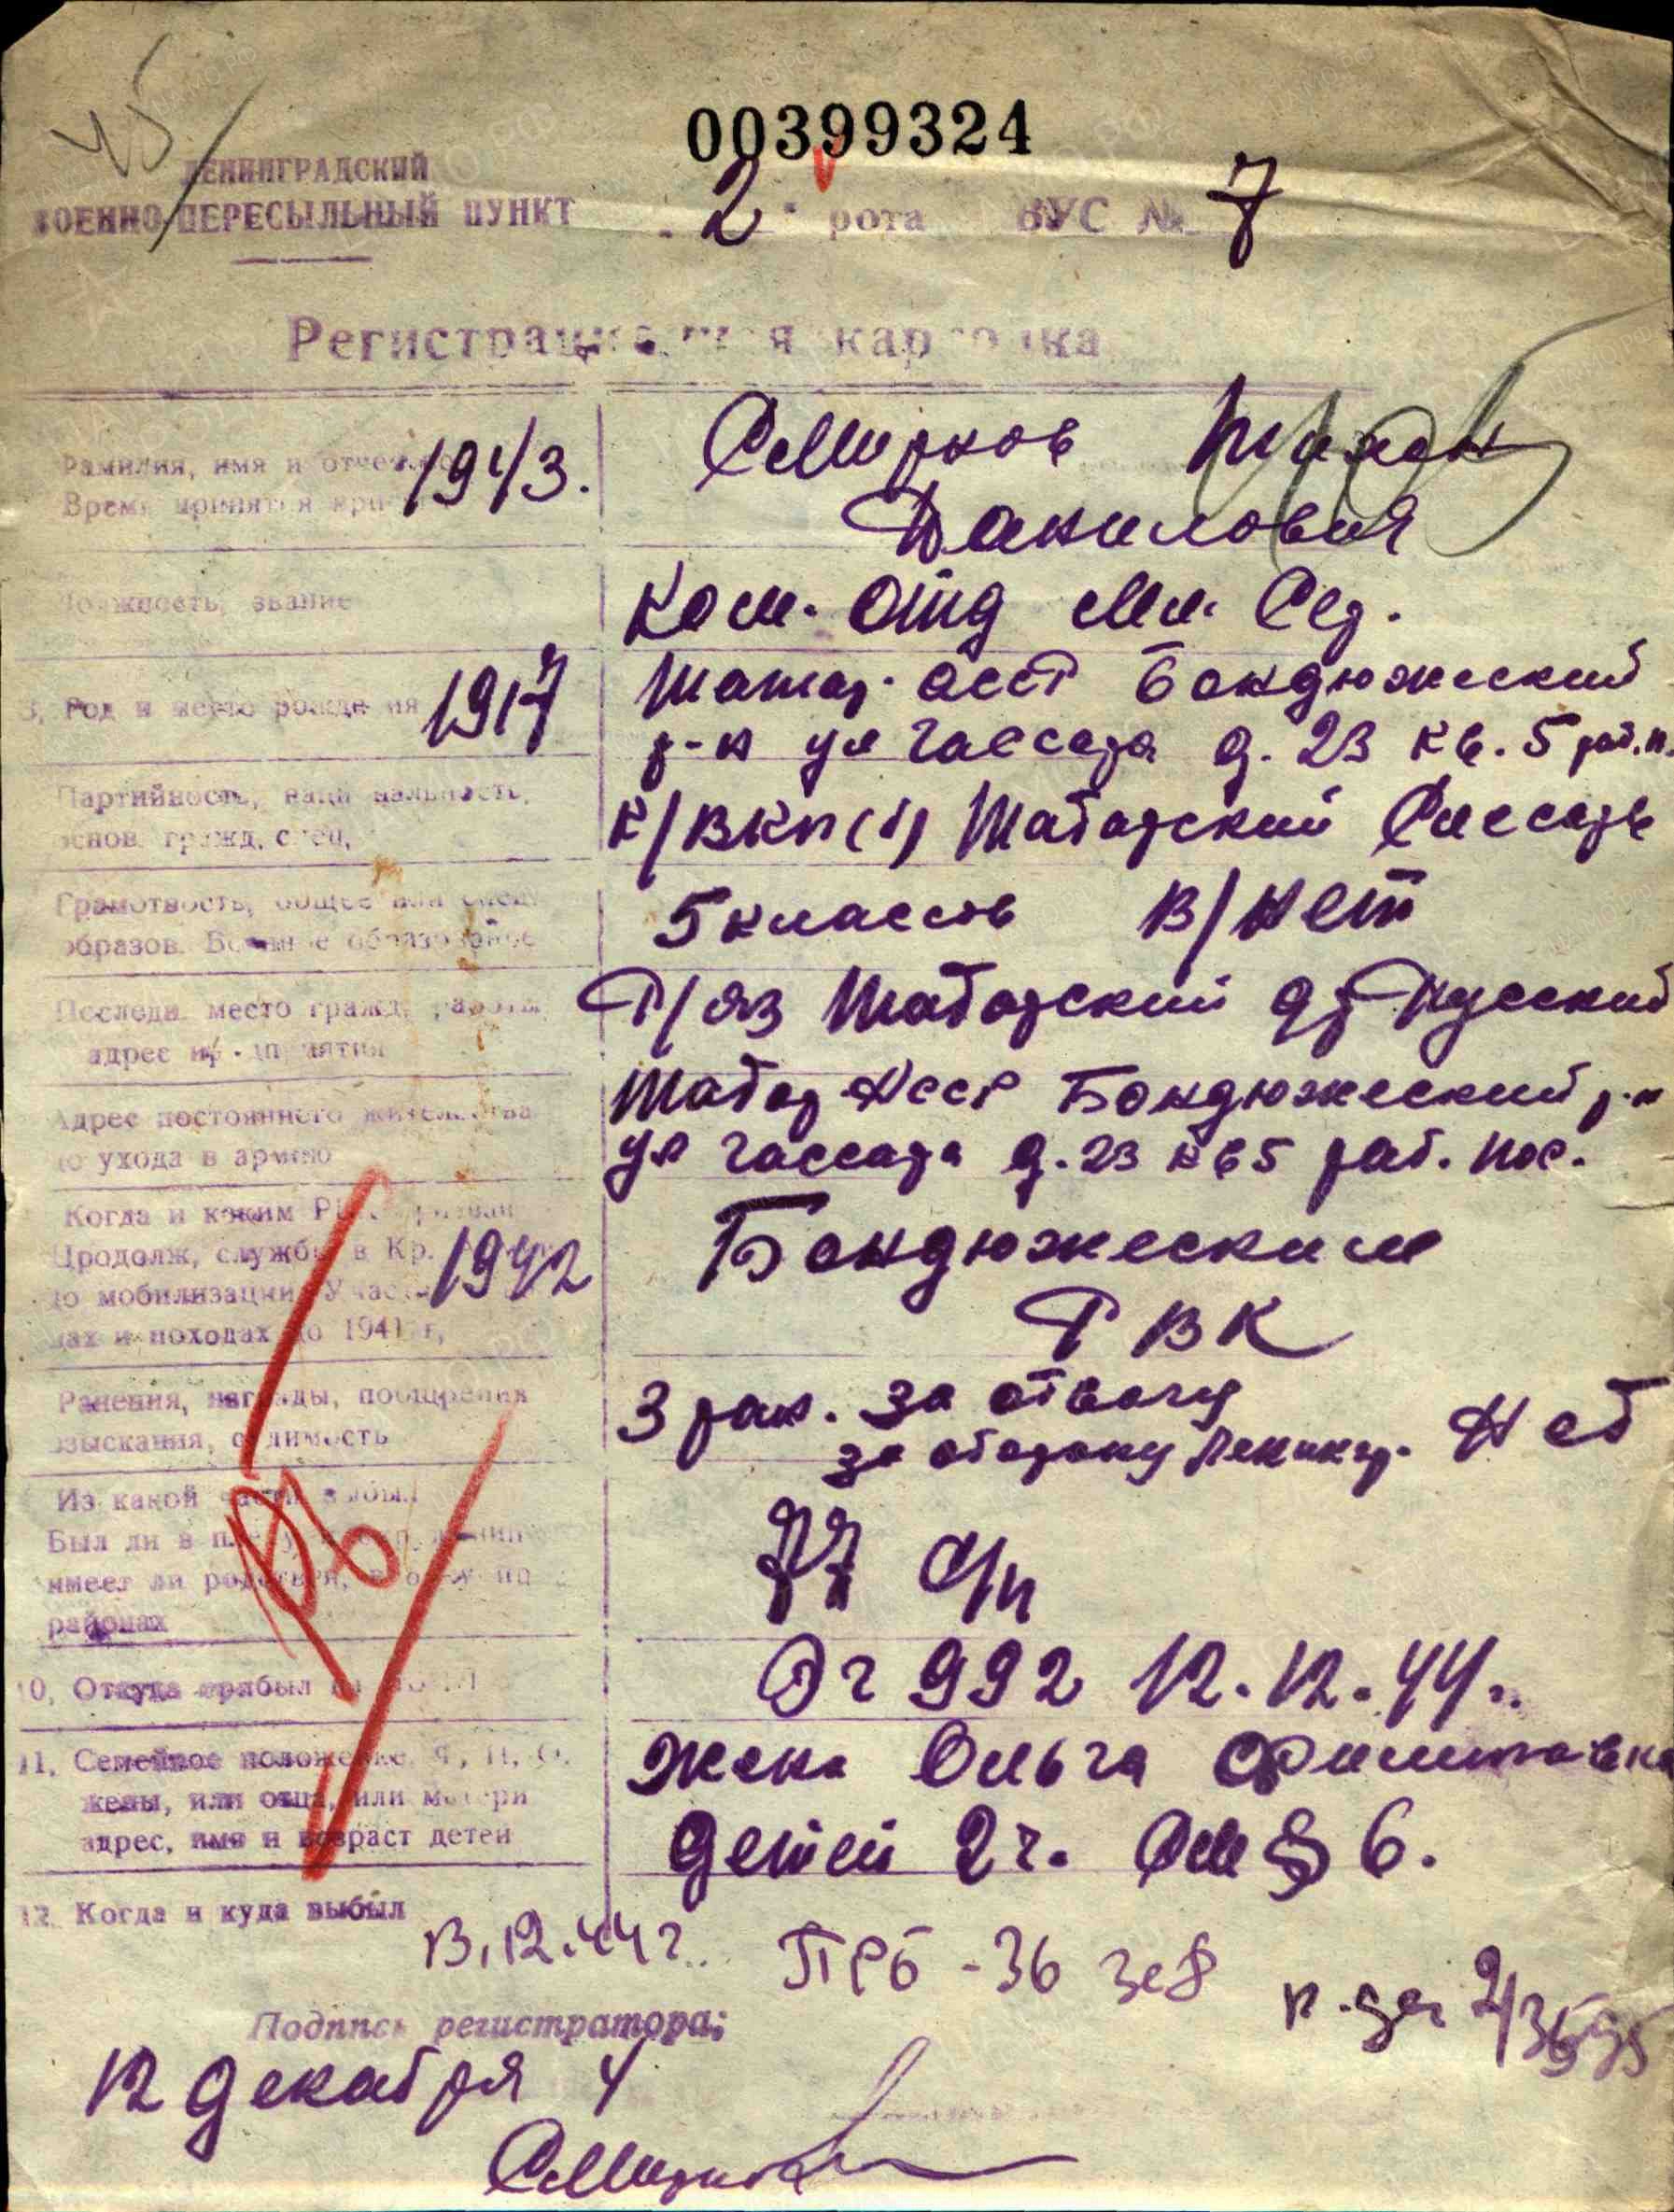 45
00399324
ЛЕНИНГРАДСКИЙ
ВОЕННО-ПЕРЕСЫЛЬНЫЙ ПУНКТ
2 рота ВУС № 7
Регистрационная карточка
Фамилия, имя и отчество
Время принятия 1943.
Смирнов
Данилович
Должность, звание
Ком. отд Мл. Сер.
3, Год и место рождения 1917
Татар. АССР Бондюжский
р-н ул Гассара д. 23 кв. 5 раб. п.
Партийность, национальность,
основ. гражд. спец,
К/ВКП(б) Татарский Слесарь
Грамотность, общее или спец.
образов. Военное образование
5 классов В/нет
Последн. место гражд. работы,
адрес предприятия
Р/яз Татарский др Русский
Адрес постоянного жительства
до ухода в армию
Татар АССР Бондюжский р-н
ул Гассара д. 23 кв 5 раб. пос.
Когда и каким РВК призван
Продолж, службы в Кр.
до мобилизации Участ. 1942
и походах до 1941 г,
Бондюжским
РВК
Ранения, награды, поощрения
взыскания, судимость
3 ран. за отвагу
за оборону Ленингр. Нет
Из какой части выбыл
Был ли в плену
имеет ли родствен,
районах
77 с/п
10, Откуда прибыл
Эг 992 12.12.44.
11, Семейное положение Ф, И, О.
жены, или отца, или матери
адрес, имя и возраст детей
жена Ольга Филиповна
детей 2 ч. См § 6.
12. Когда и куда выбыл
13.12.44 г. ПРБ - 36 зсд
Подпись регистратора:
12 декабря 4